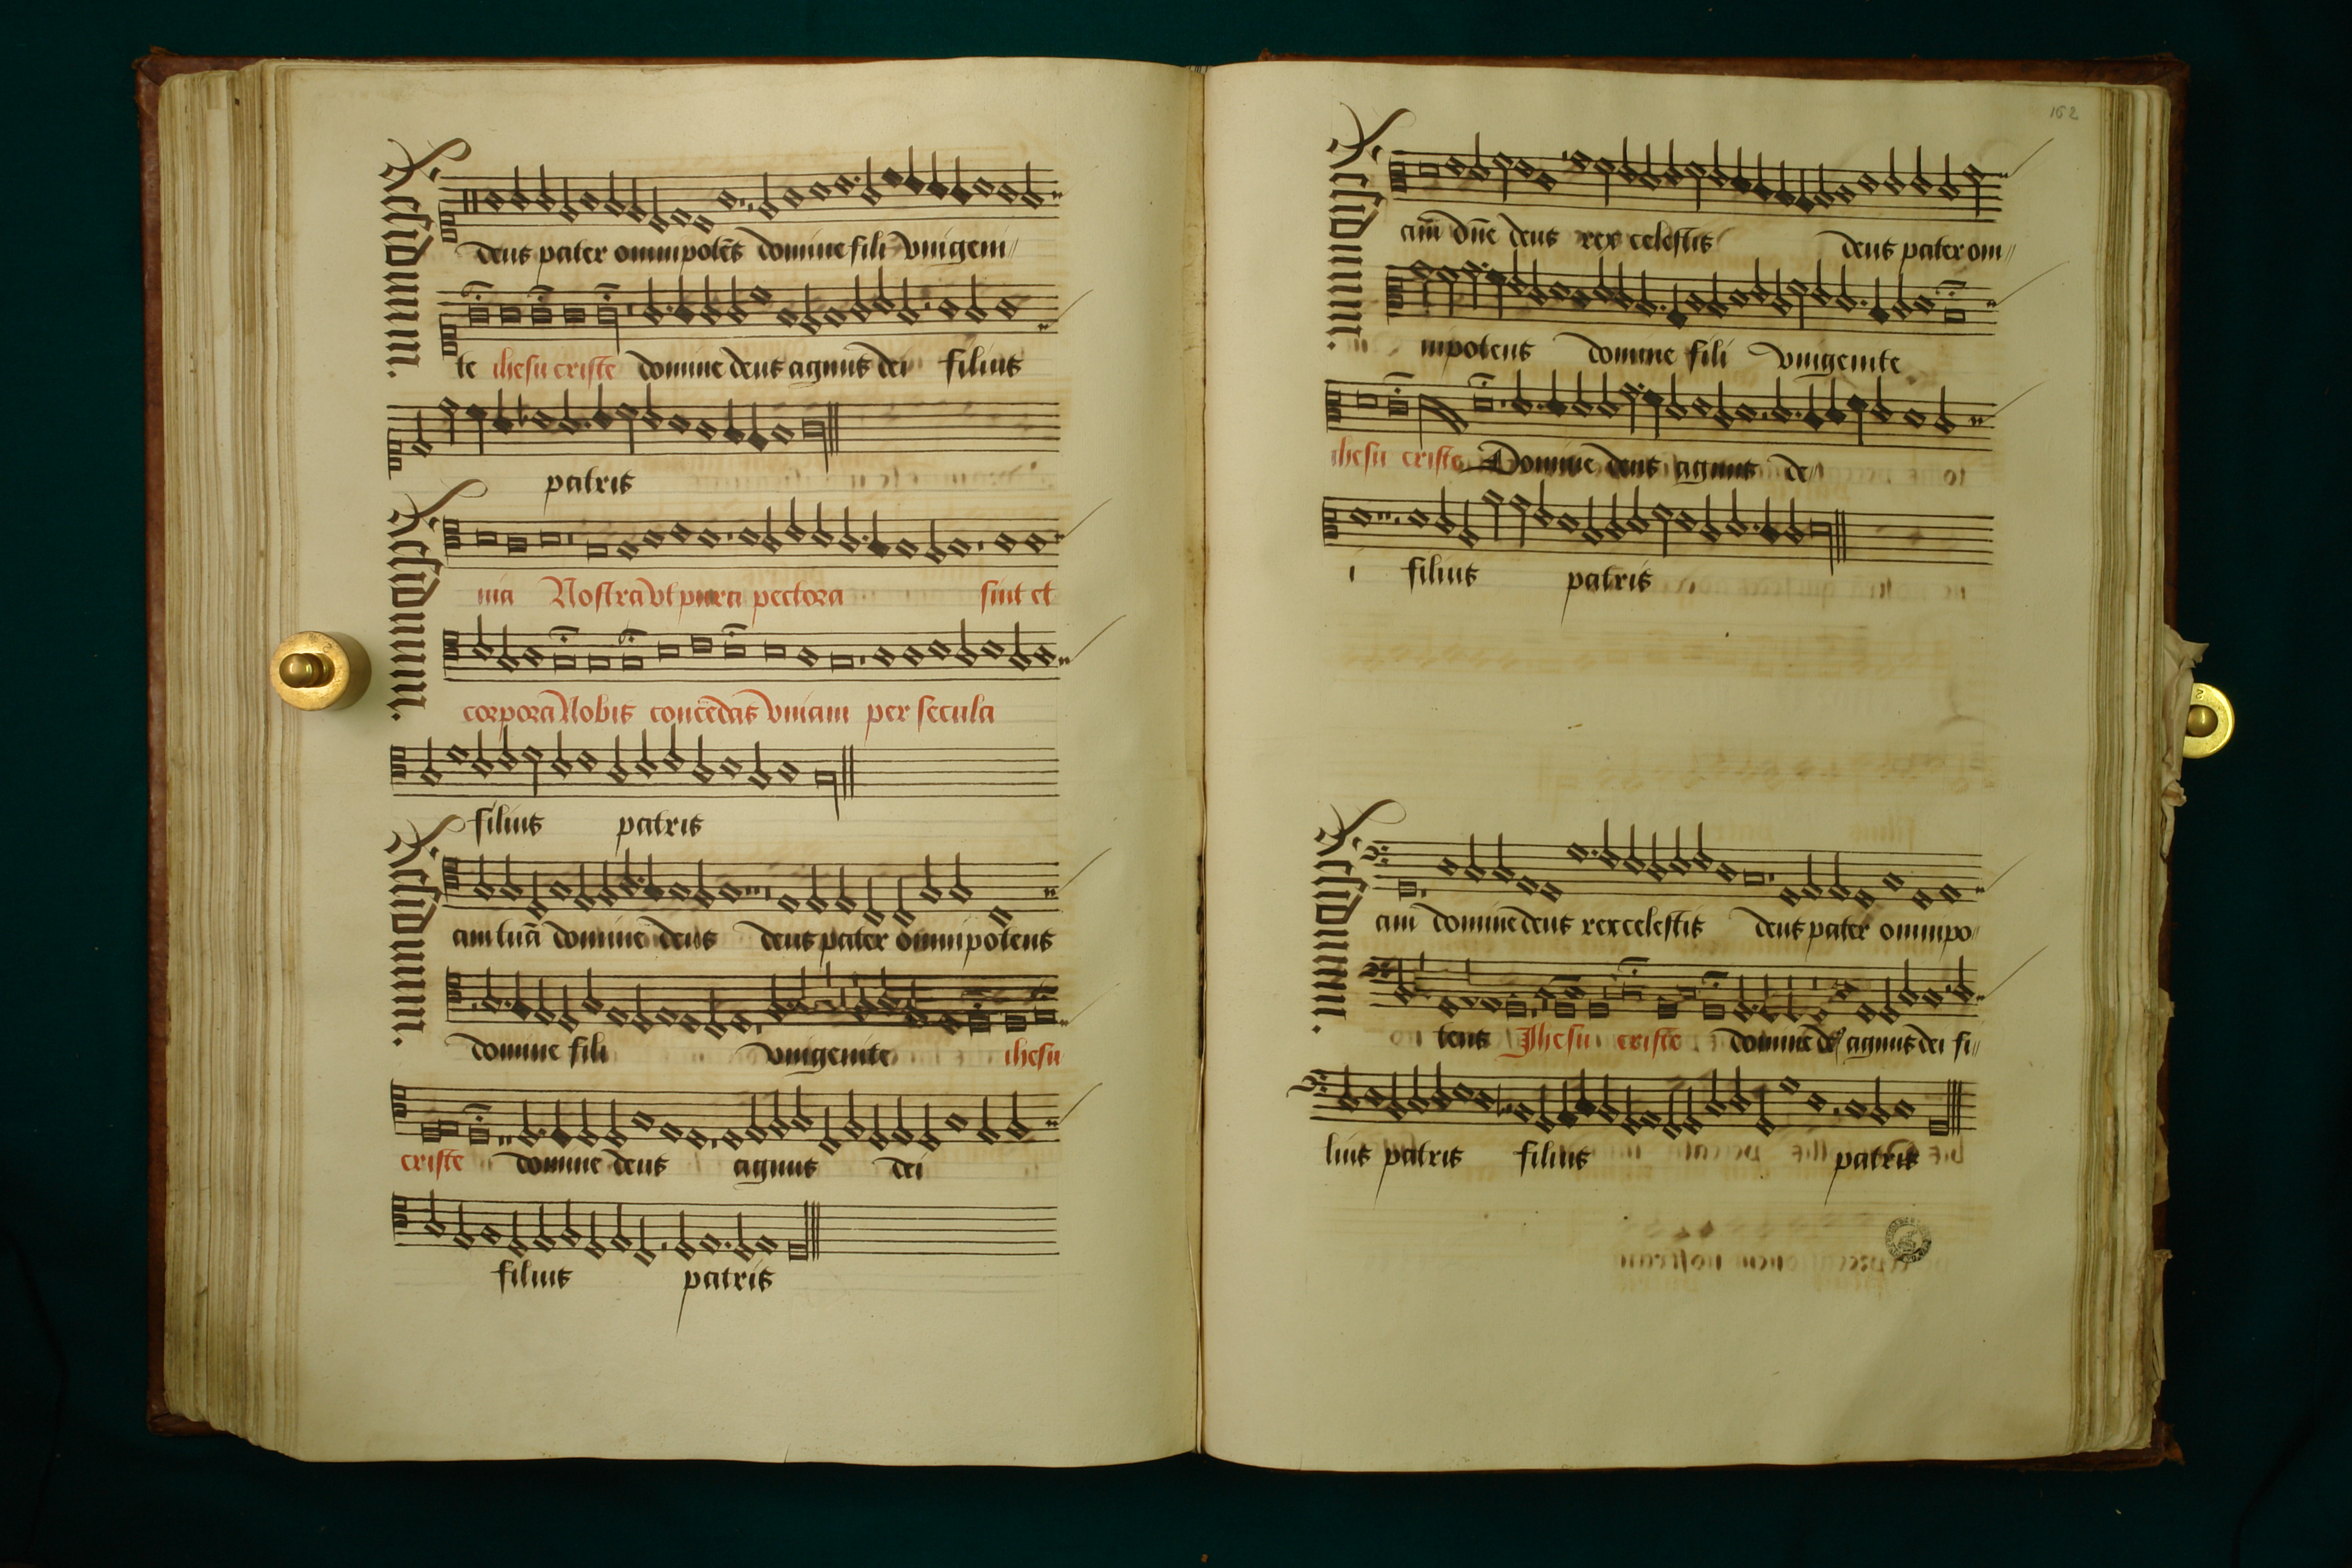 Residuum.
deus pater omnipotēs domine fili vnigeni//
te ihesu criste domine deus agnus dei filius
patris
Residuum.
nia Nostra vt pura pectora sint et
corpora Nobis concedas vniam per secula
filius patris
Residuum.
am tuā domine deus deus pater omnipotens
domine fili vnigenite ihesu
criste domine deus agnus dei
filius patris
162
Residuum.
am dn̄e deus rex celestis deus pater om//
nipotens domine fili vnigenite
ihesu criste Domine deus agnus de//
i filius patris
Residuum.
am domine deus rex celestis deus pater omnipo//
tens Jhesu criste domine agnus dei fi//
lius patris filius patris